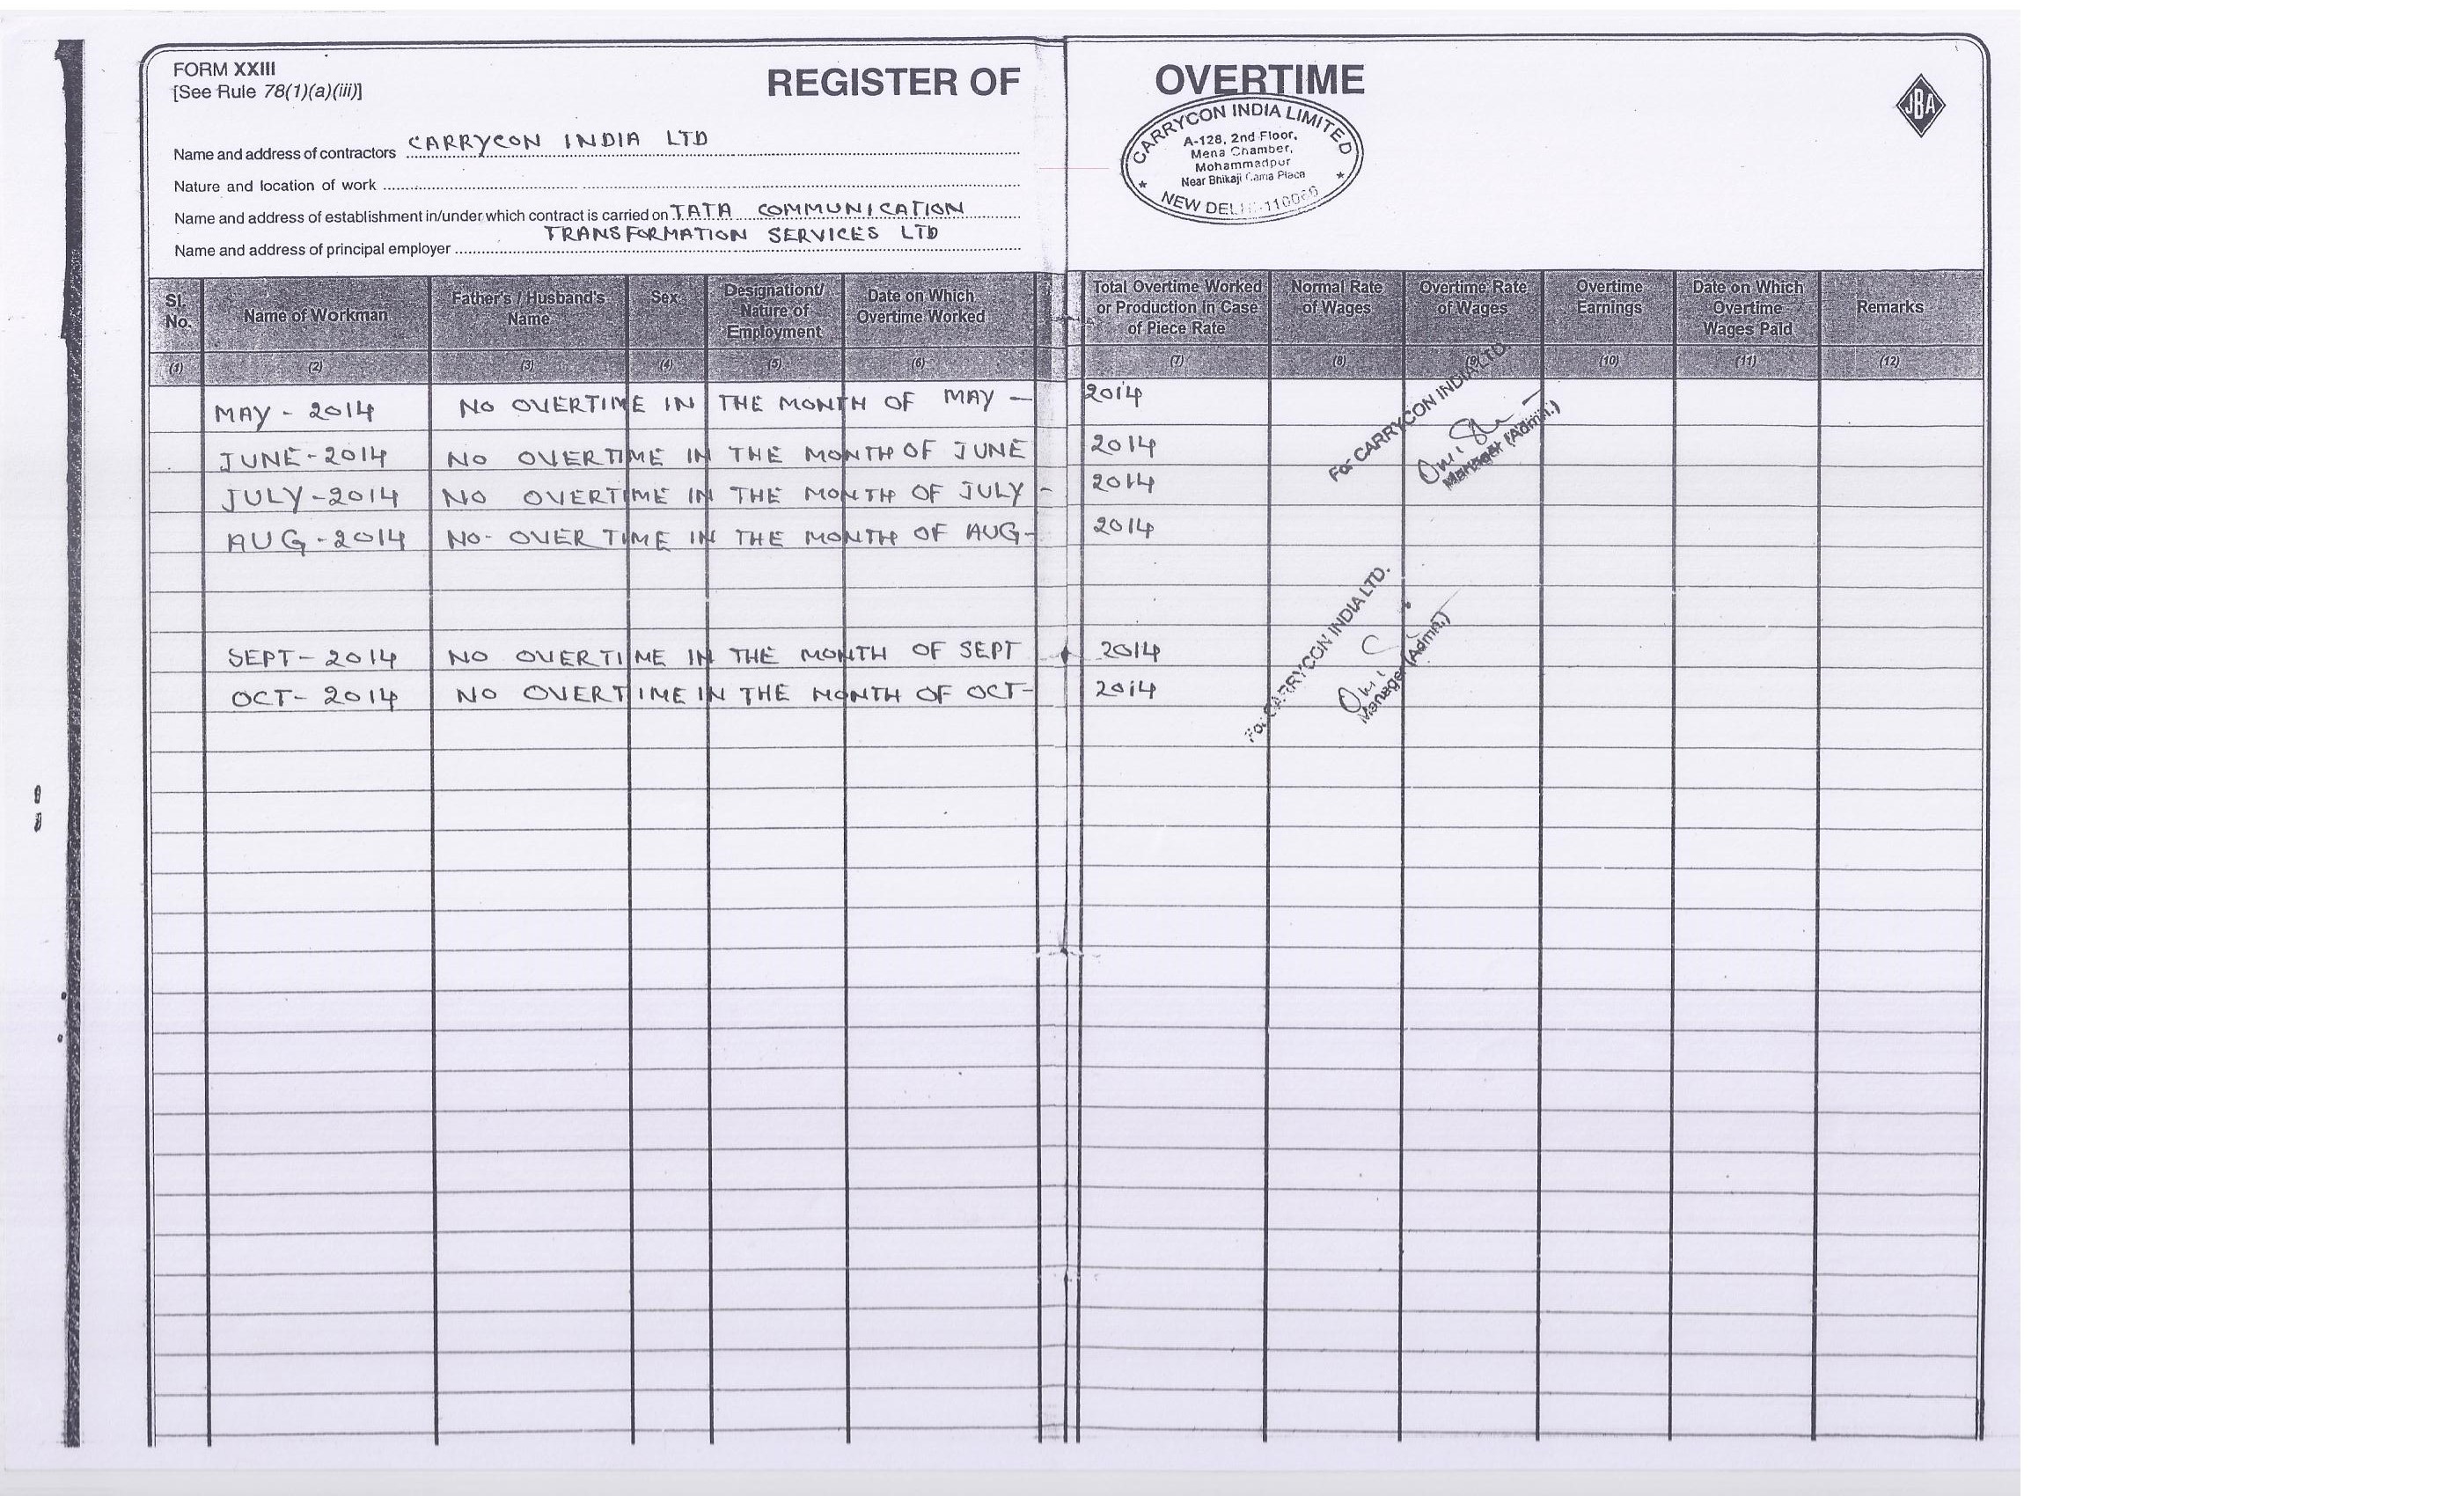 FORM XXIII
[See Rule 78(1)(a)(iii)]
REGISTER OF OVERTIME
JBA
CARRYCON INDIA LIMITED
A-128, 2nd Floor,
Mena Chamber,
Mohammadpur
Near Bhikaji Cama Place
NEW DELHI-110066
Name and address of contractors CARRYCON INDIA LTD
Nature and location of work
Name and address of establishment in/under which contract is carried on TATA COMMUNICATION
TRANSFORMATION SERVICES LTD
Name and address of principal employer
Sl. No. Name of Workman Father's / Husband's Name Sex Designationt/ Nature of Employment Date on Which Overtime Worked Total Overtime Worked or Production In Case of Piece Rate Normal Rate of Wages Overtime Rate of Wages Overtime Earnings Date on Which Overtime Wages Paid Remarks
(1) (2) (3) (4) (5) (6) (7) (8) (9) (10) (11) (12)
MAY - 2014 NO OVERTIME IN THE MONTH OF MAY - 2014
JUNE-2014 NO OVERTIME IN THE MONTH OF JUNE 2014
JULY-2014 NO OVERTIME IN THE MONTH OF JULY - 2014
AUG-2014 NO- OVER TIME IN THE MONTH OF AUG- 2014
For CARRYCON INDIA LTD.
Manager (Admn.)
SEPT-2014 NO OVERTIME IN THE MONTH OF SEPT 2014
OCT-2014 NO OVERTIME IN THE MONTH OF OCT- 2014
For CARRYCON INDIA LTD.
Manager (Admn.)